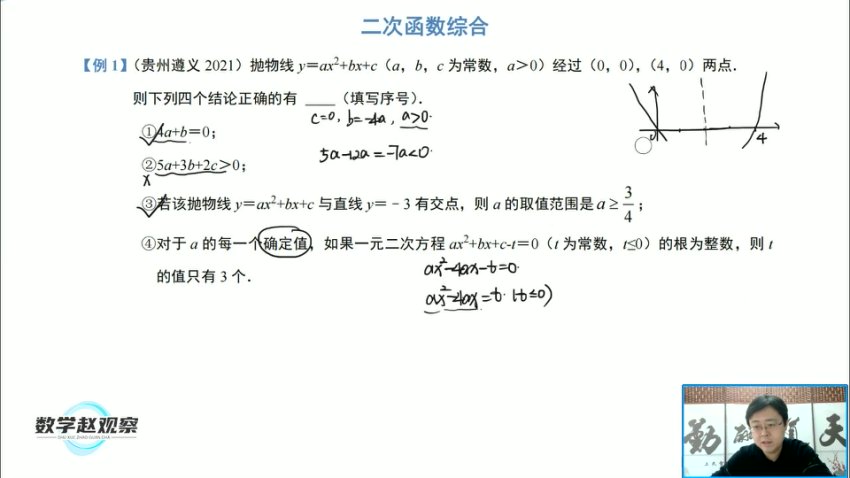 二次函数综合
【例1】（贵州遵义 2021）抛物线 y＝ax²+bx+c（a，b，c 为常数，a＞0）经过（0，0），（4，0）两点．
则下列四个结论正确的有 ____（填写序号）．
c=0, b=-4a, a>0.
①4a+b＝0；
5a-12a=-7a<0.
②5a+3b+2c＞0；
x
③若该抛物线 y＝ax²+bx+c 与直线 y＝﹣3 有交点，则 a 的取值范围是 a ≥ 3/4；
④对于 a 的每一个确定值，如果一元二次方程 ax²+bx+c-t＝0（t 为常数，t≤0）的根为整数，则 t
的值只有 3 个．
ax²-4ax-t=0.
ax²-4ax=t. (t≤0)
4
数学赵观察
SHU XUE ZHAO GUAN CHA
勤
天